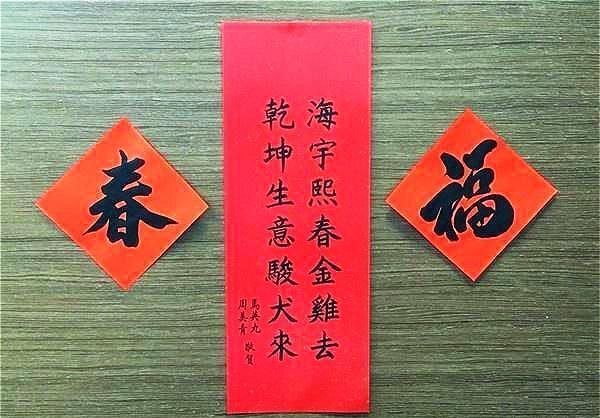 春
海宇熙春金雞去
乾坤生意駿犬來
馬英九
周美青
敬賀
福